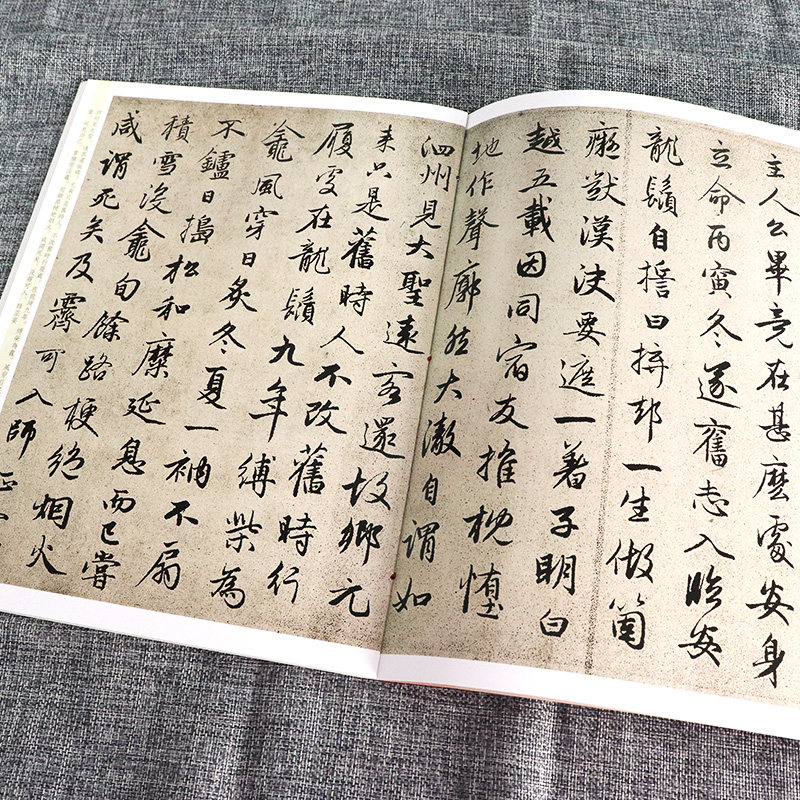 主人公畢竟在甚麼處安身
立命丙寅冬遂奮志入臨安
龍鬚自誓曰拚却一生做箇
癡獃漢決要遮一著子明白
越五載因同宿友推枕墮
地作聲廓然大徹自謂如
泗州見大聖遠客還故鄉元
来只是舊時人不改舊時行
履處在龍鬚九年縛柴為
龕風穿日炙冬夏一衲不扇
不鑪日搗松和糜延息而已嘗
積雪沒龕旬餘路梗絕烟火
咸謂死矣及霽可入師正